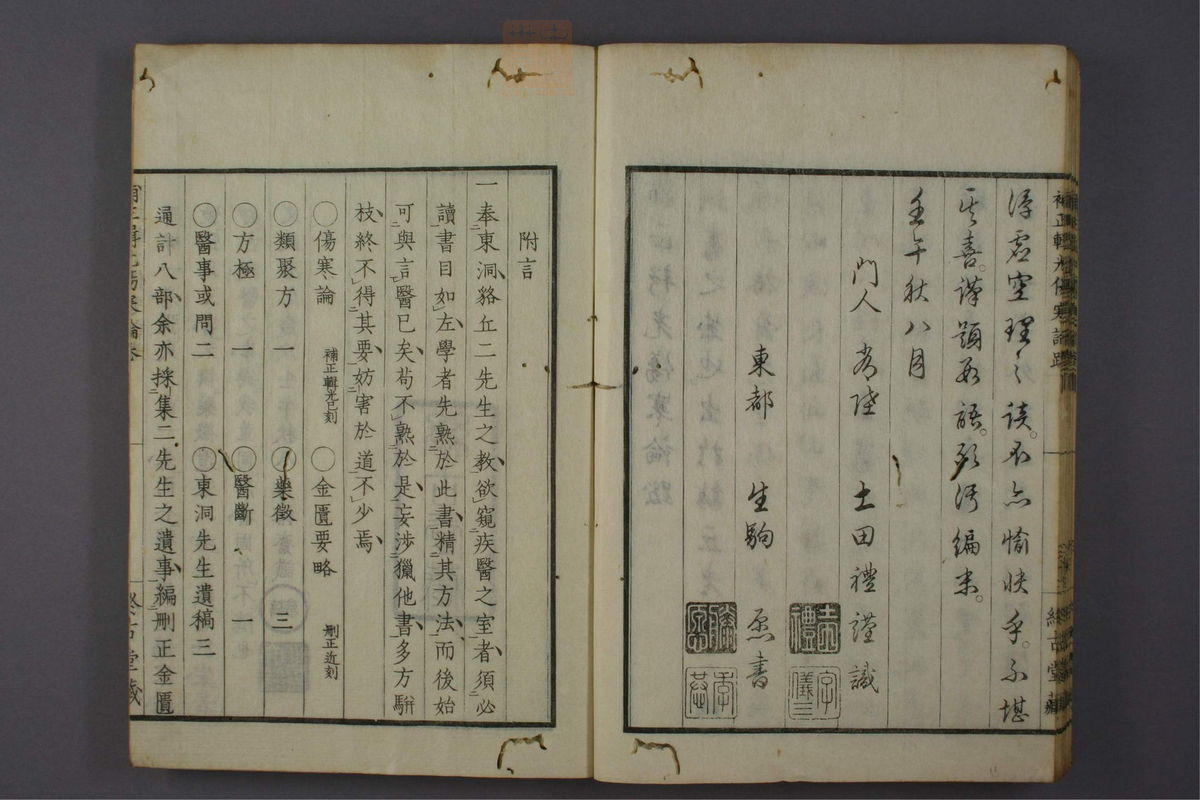 補正輯光傷寒論跋
浮君空理之談不亦愉快乎不堪
其喜謹題數語以汚編末
壬午秋八月
門人 土田禮謹識
東都 生駒 愿書
附言
一奉東洞貉丘二先生之教欲窺疾醫之室者須必
讀書目如左學者先熟於此書精其方法而後始
可與言醫已矣苟不熟於是妄涉獵他書多方駢
枝終不得其要妨害於道不少焉
〇傷寒論 補正輯光已刻 〇金匱要略 刪正近刻
〇類聚方一 〇藥徵 三
〇方極 一 〇醫斷 一
〇醫事或問二 〇東洞先生遺稿三
通計八部余亦採集二先生之遺事編刪正金匱